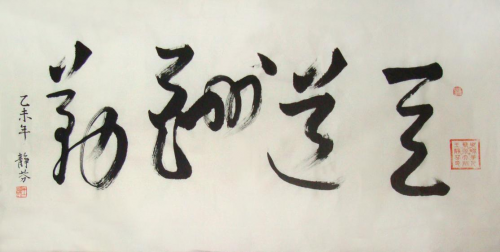 天道酬勤
乙未年 静芬